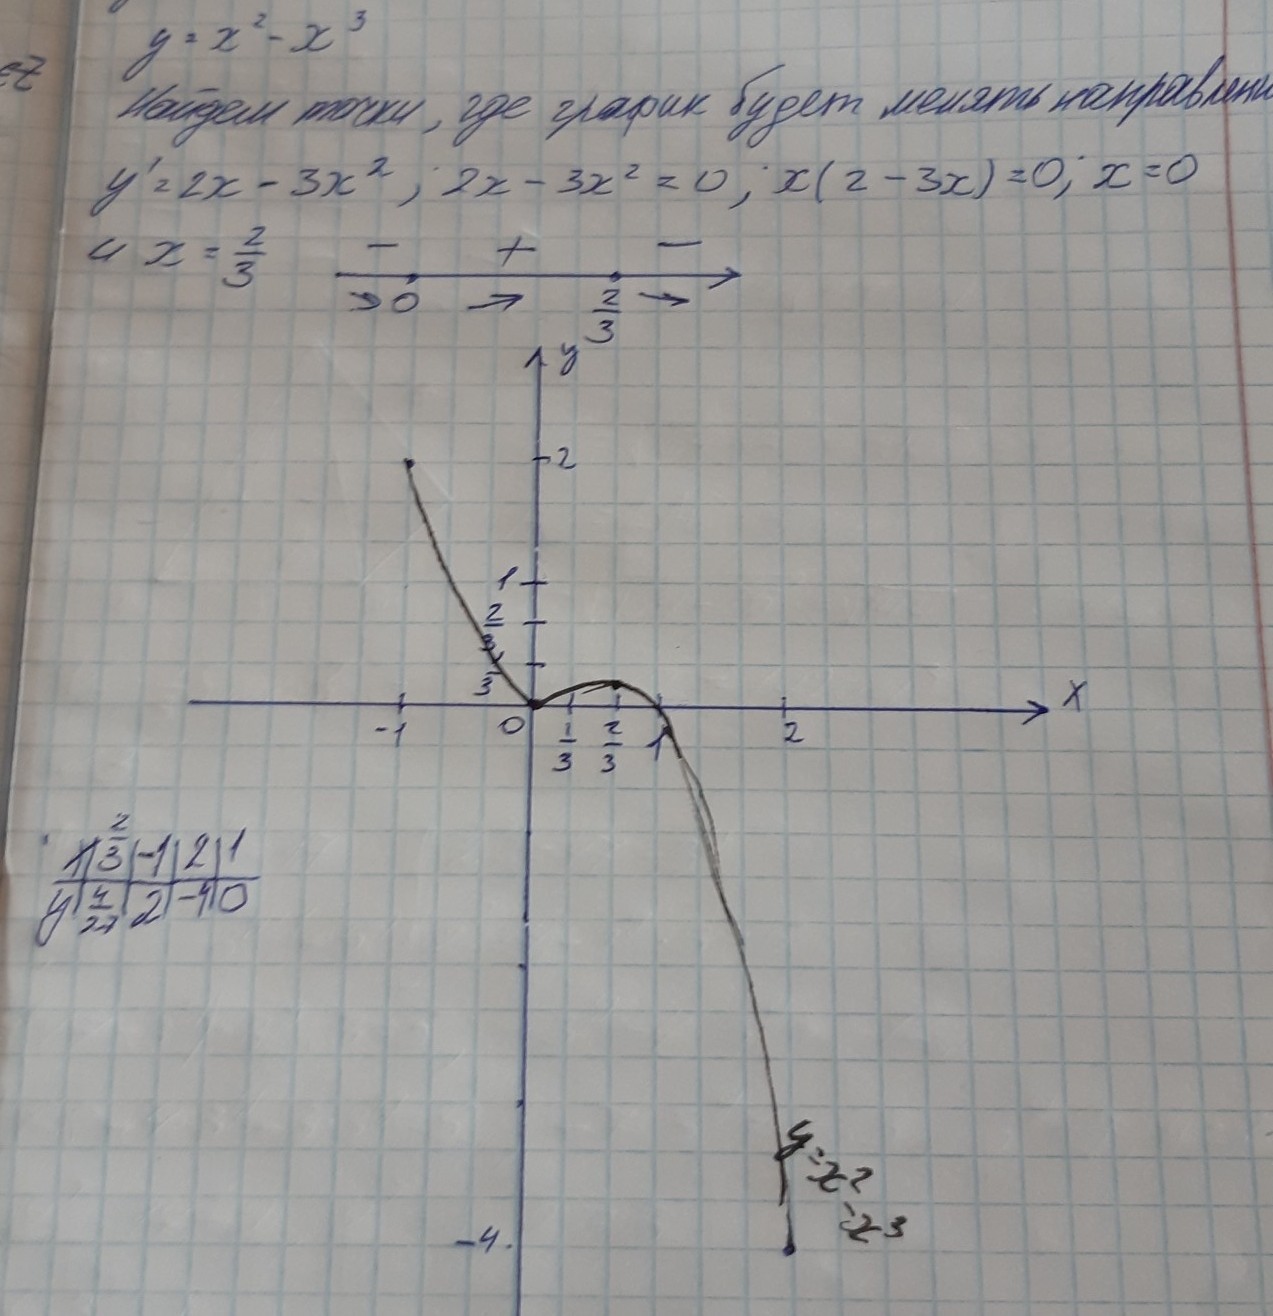 y = x² - x³
Найдем точки, где график будет менять направлени
y' = 2x - 3x² ; 2x - 3x² = 0 ; x(2 - 3x) = 0; x = 0
и x = 2/3
- + -
0 2/3
y
2
1
2/3
3
-1 0 1/3 2/3 1 2 x
x | 2/3 | -1 | 2 | 1
y | 4/27 | 2 | -4 | 0
y = x²
- x³
-4